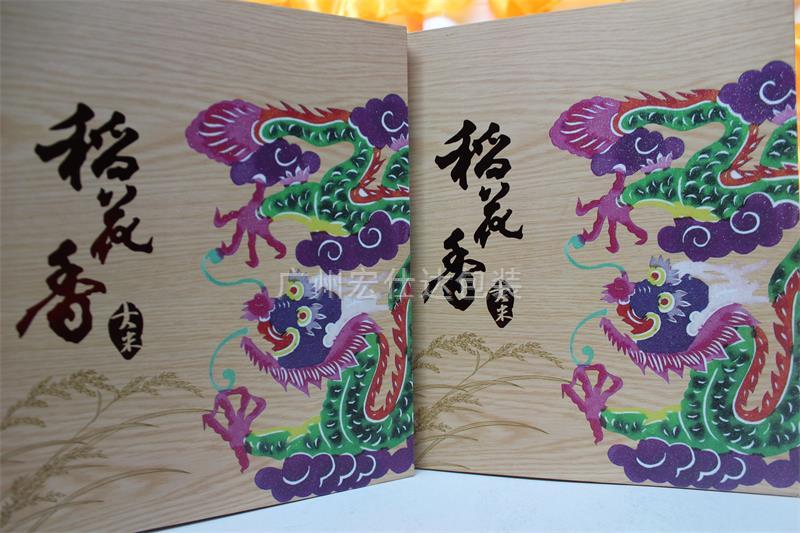 稻花香
大米
稻花香
大米
广州宏仕达包装